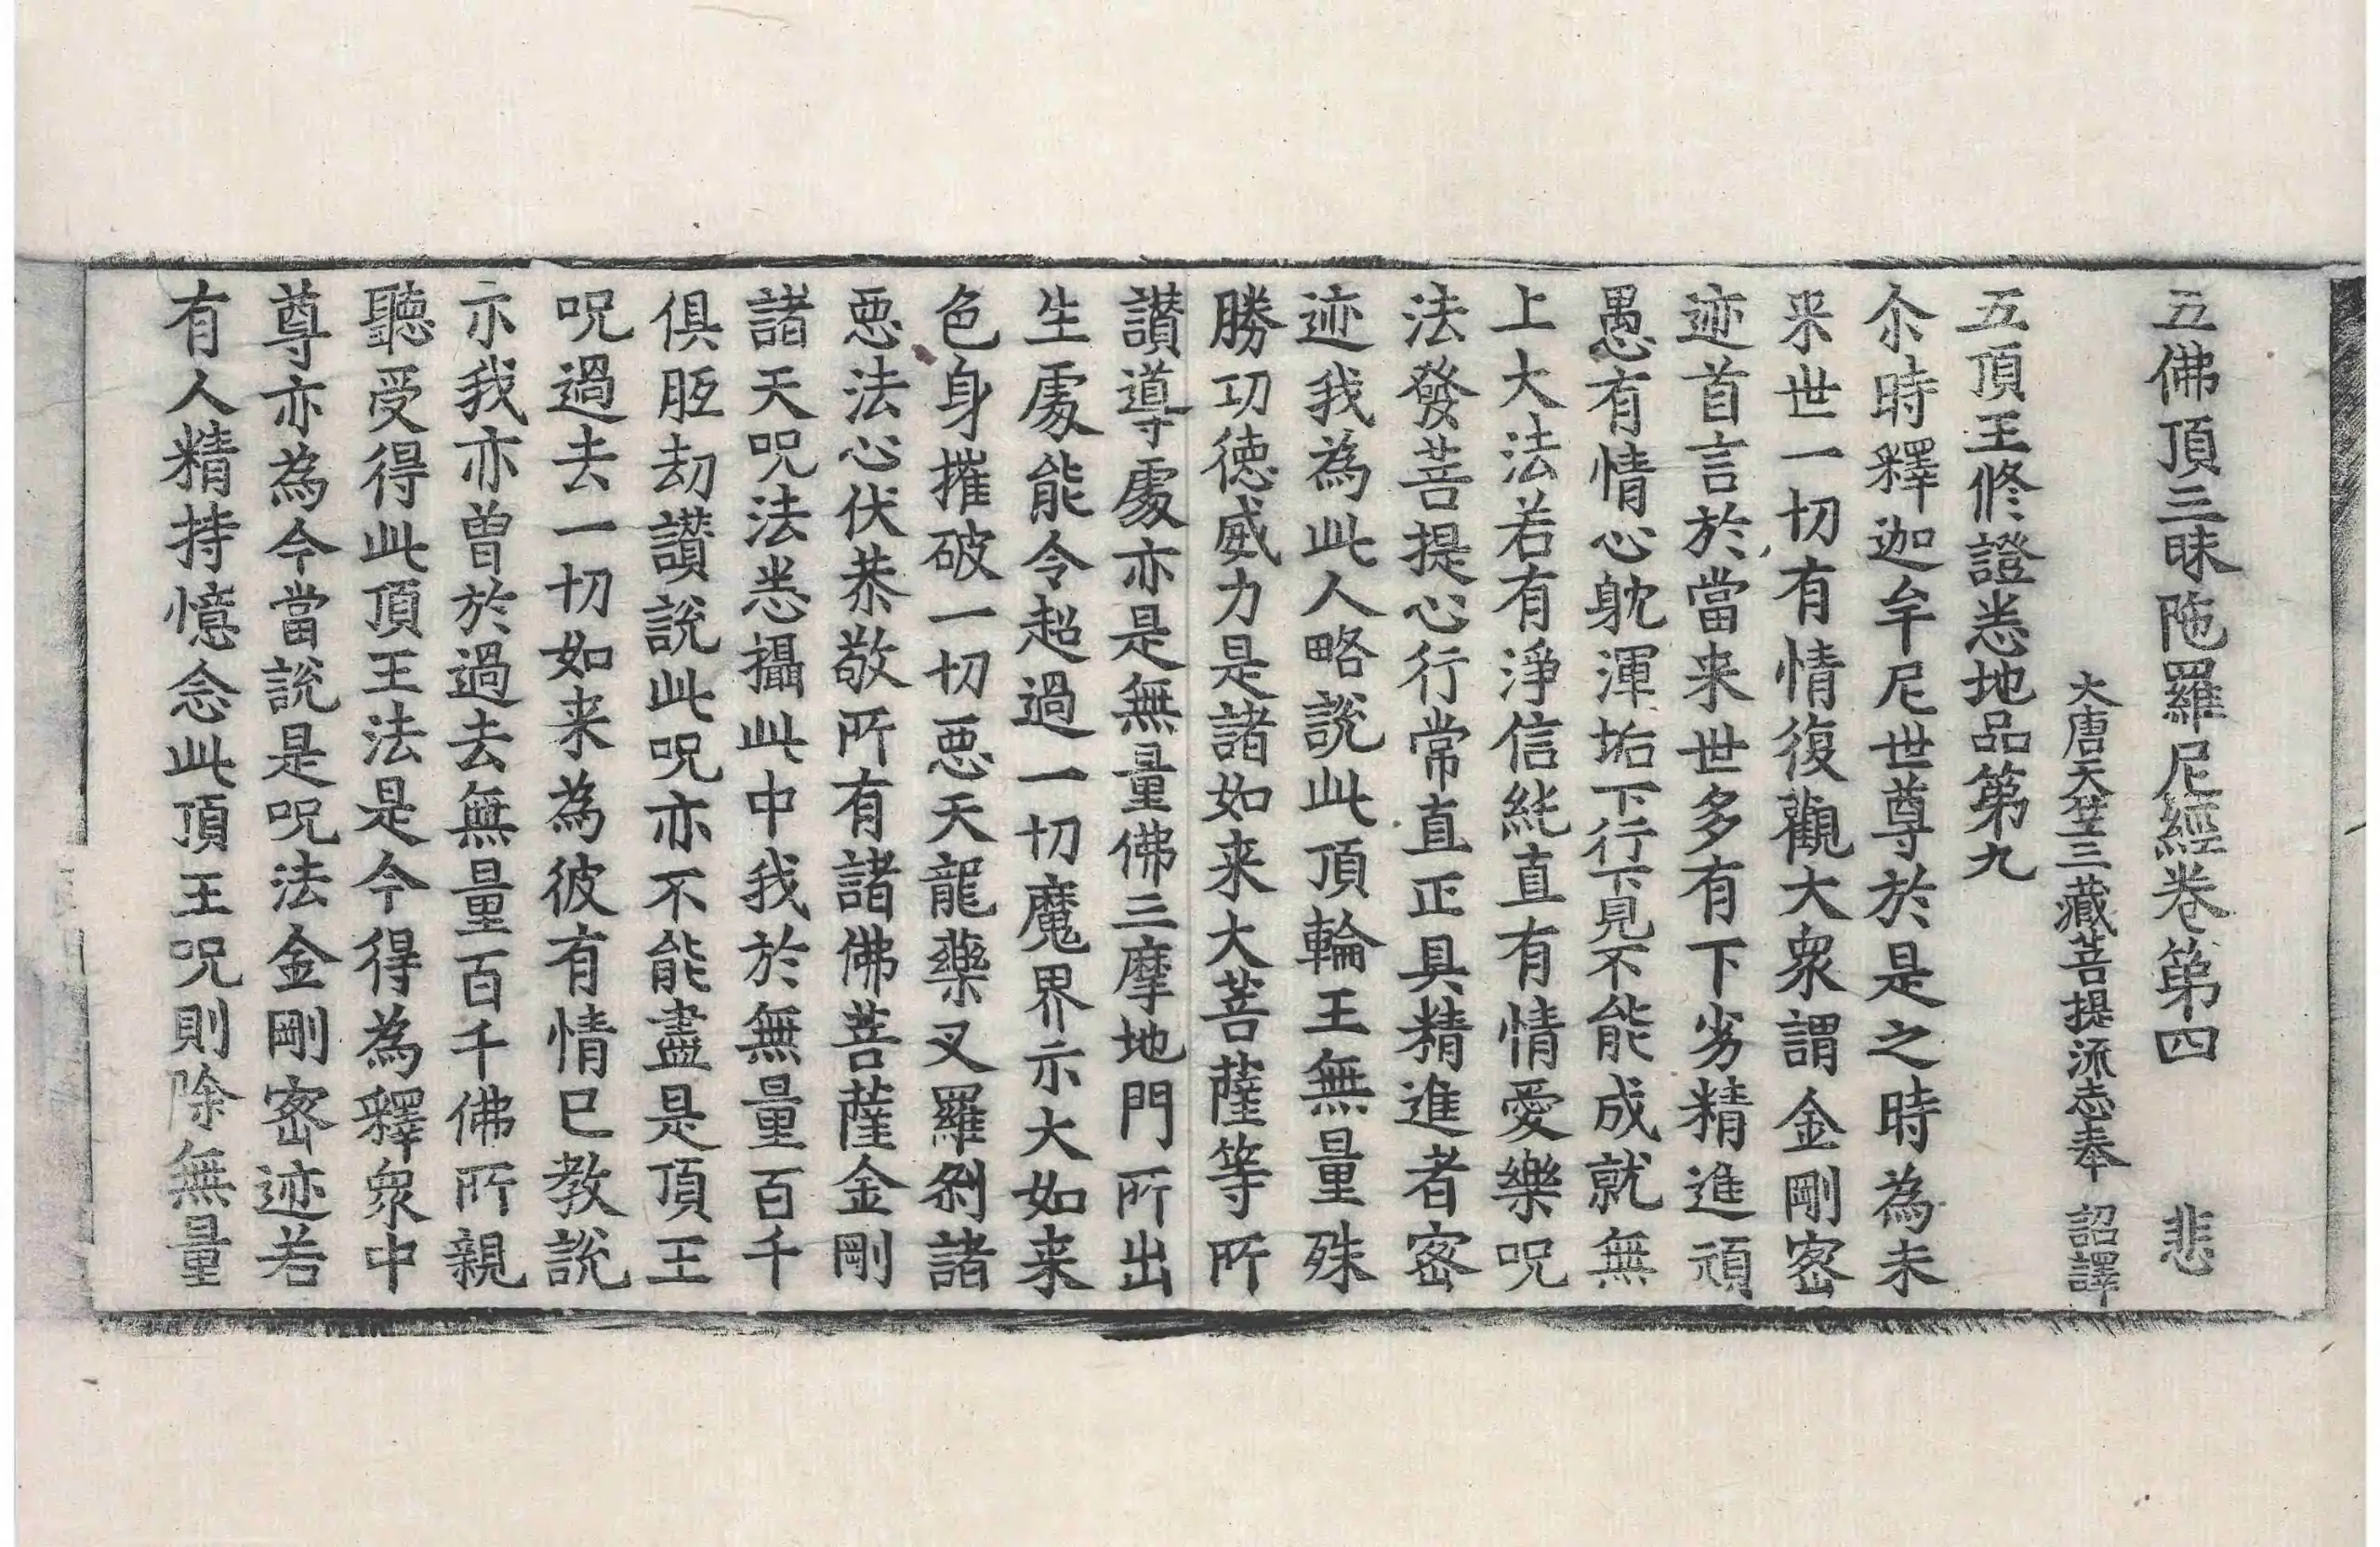 五佛頂三昧陁羅尼經卷第四 悲
大唐天竺三藏菩提流志奉 詔譯
五頂王修證悉地品第九
尒時釋迦牟尼世尊於是之時為未
来世一切有情復觀大衆謂金剛密
迹首言於當来世多有下劣精進頑
愚有情心躭渾垢下行下見不能成就無
上大法若有淨信純直有情愛樂呪
法發菩提心行常直正具精進者密
迹我為此人略說此頂輪王無量殊
勝功徳威力是諸如来大菩薩等所
讃導處亦是無量佛三摩地門所出
生處能令超過一切魔界示大如来
色身摧破一切惡天龍藥叉羅剎諸
惡法心伏恭敬所有諸佛菩薩金剛
諸天呪法悉攝此中我於無量百千
俱胝劫讃說此呪亦不能盡是頂王
呪過去一切如来為彼有情已教說
示我亦曾於過去無量百千佛所親
聽受得此頂王法是今得為釋衆中
尊亦為今當說是呪法金剛密迹若
有人精持憶念此頂王呪則除無量